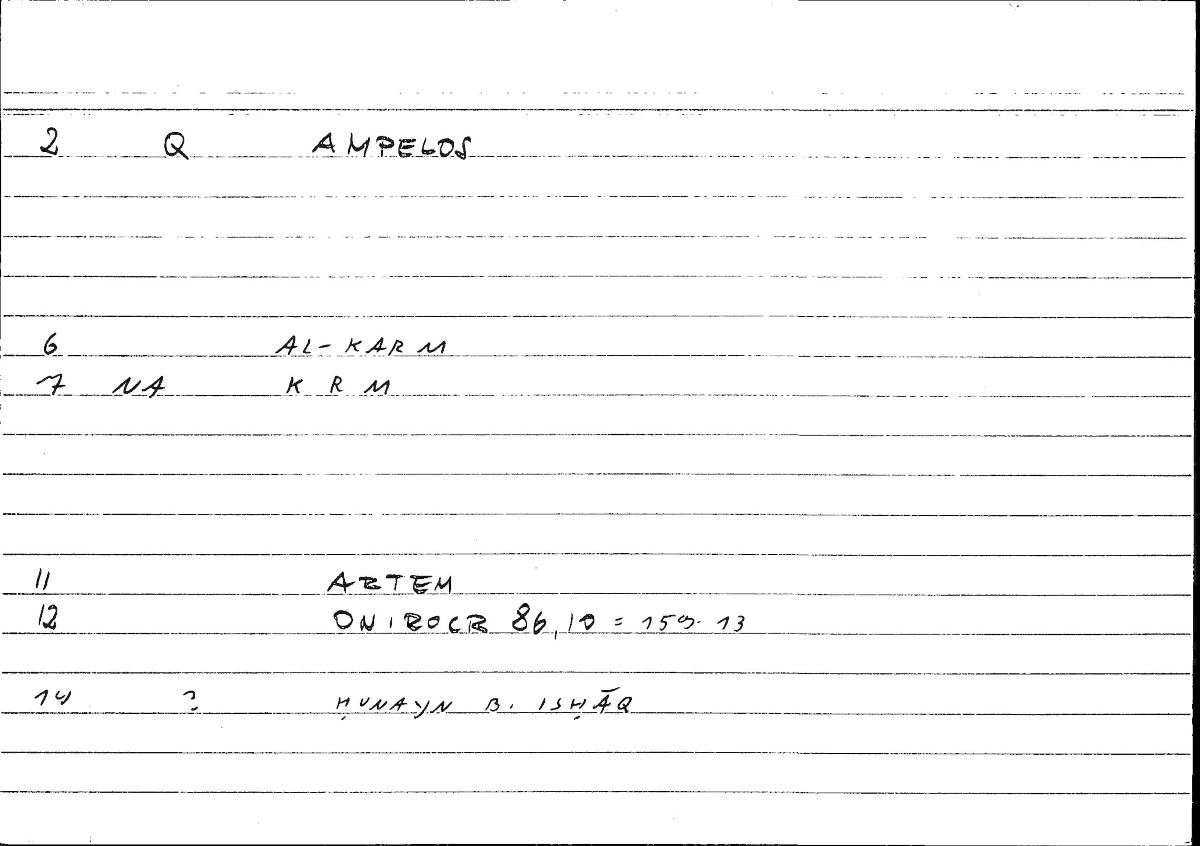 2 Q AMPELOS
6 AL-KARM
7 NA K R M
11 ARTEM
12 ONIROCR 86,10 = 159.13
14 ? ḤUNAYN B. ISḤĀQ